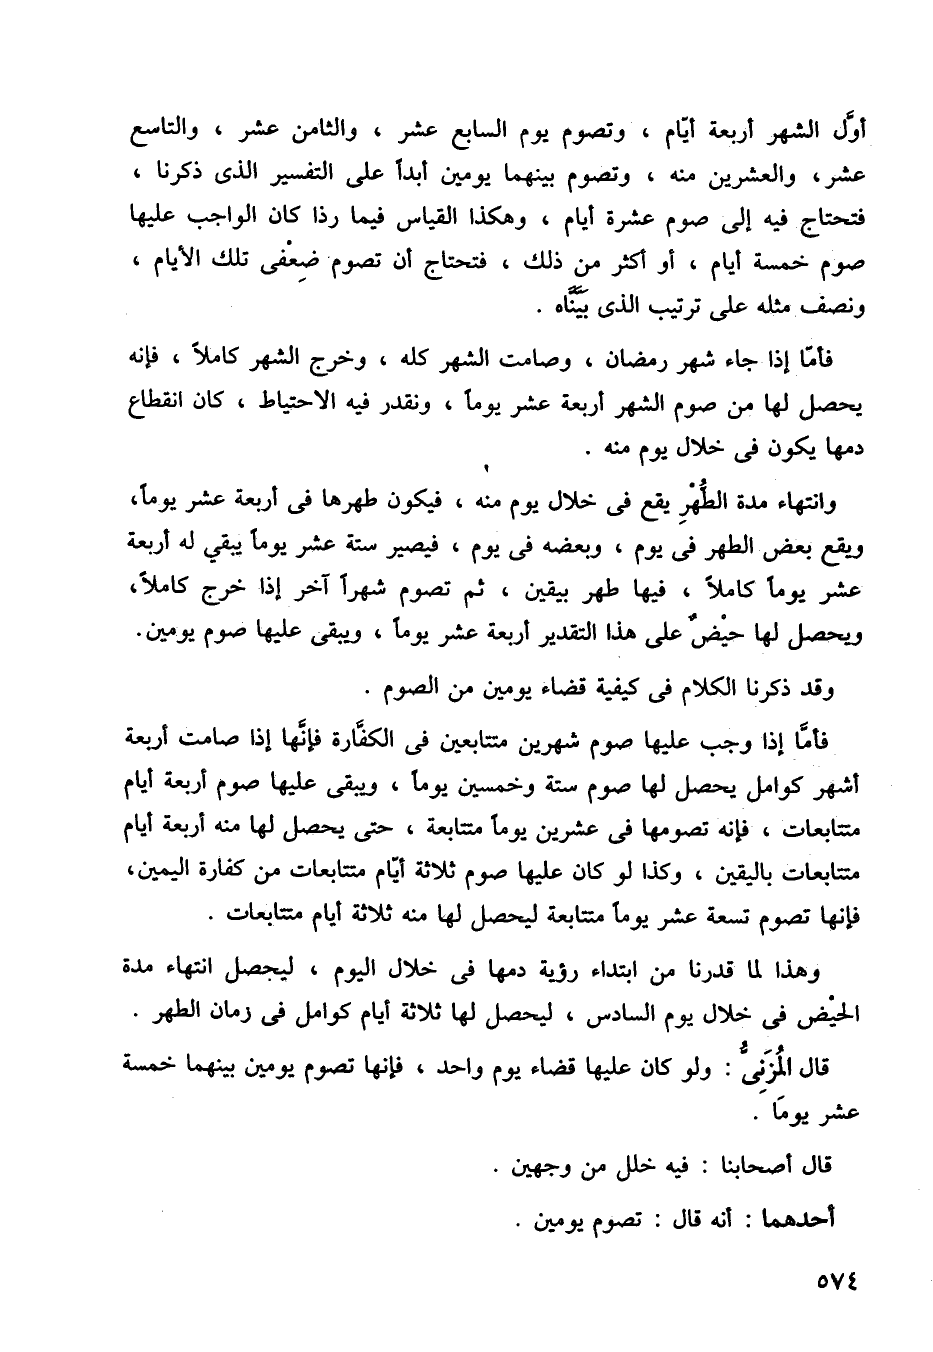 أوَّل الشهر أربعة أيّام ، وتصوم يوم السابع عشر ، والثامن عشر ، والتاسع
عشر، والعشرين منه ، وتصوم بينهما يومين أبداً على التفسير الذى ذكرنا ،
فتحتاج فيه إلى صوم عشرة أيام ، وهكذا القياس فيما رذا كان الواجب عليها
صوم خمسة أيام ، أو أكثر من ذلك ، فتحتاج أن تصوم ضِعْفى تلك الأيام ،
ونصف مثله على ترتيب الذى بَيَّنَّاه .
فأمّا إذا جاء شهر رمضان ، وصامت الشهر كله ، وخرج الشهر كاملاً ، فإنه
يحصل لها من صوم الشهر أربعة عشر يوماً ، ونقدر فيه الاحتياط ، كان انقطاع
دمها يكون فى خلال يوم منه .
وانتهاء مدة الطُّهْرِ يقع فى خلال يوم منه ، فيكون طهرها فى أربعة عشر يوماً،
ويقع بعض الطهر فى يوم ، وبعضه فى يوم ، فيصير ستة عشر يوماً يبقي له أربعة
عشر يوماً كاملاً ، فيها طهر بيقين ، ثم تصوم شهراً آخر إذا خرج كاملاً،
ويحصل لها حيْضٌ على هذا التقدير أربعة عشر يوماً ، ويبقى عليها صوم يومين.
وقد ذكرنا الكلام فى كيفية قضاء يومين من الصوم .
فأمَّا إذا وجب عليها صوم شهرين متتابعين فى الكفَّارة فإنَّها إذا صامت أربعة
أشهر كوامل يحصل لها صوم ستة وخمسين يوماً ، ويبقى عليها صوم أربعة أيام
متتابعات ، فإنه تصومها فى عشرين يوماً متتابعة ، حتى يحصل لها منه أربعة أيام
متتابعات باليقين ، وكذا لو كان عليها صوم ثلاثة أيّام متتابعات من كفارة اليمين،
فإنها تصوم تسعة عشر يوماً متتابعة ليحصل لها منه ثلاثة أيام متتابعات .
وهذا لما قدرنا من ابتداء رؤية دمها فى خلال اليوم ، ليحصل انتهاء مدة
الحيْض فى خلال يوم السادس ، ليحصل لها ثلاثة أيام كوامل فى زمان الطهر .
قال المُزَنِىُّ : ولو كان عليها قضاء يوم واحد ، فإنها تصوم يومين بينهما خمسة
عشر يومَا .
قال أصحابنا : فيه خلل من وجهين .
أحدهما : أنه قال : تصوم يومين .
٥٧٤